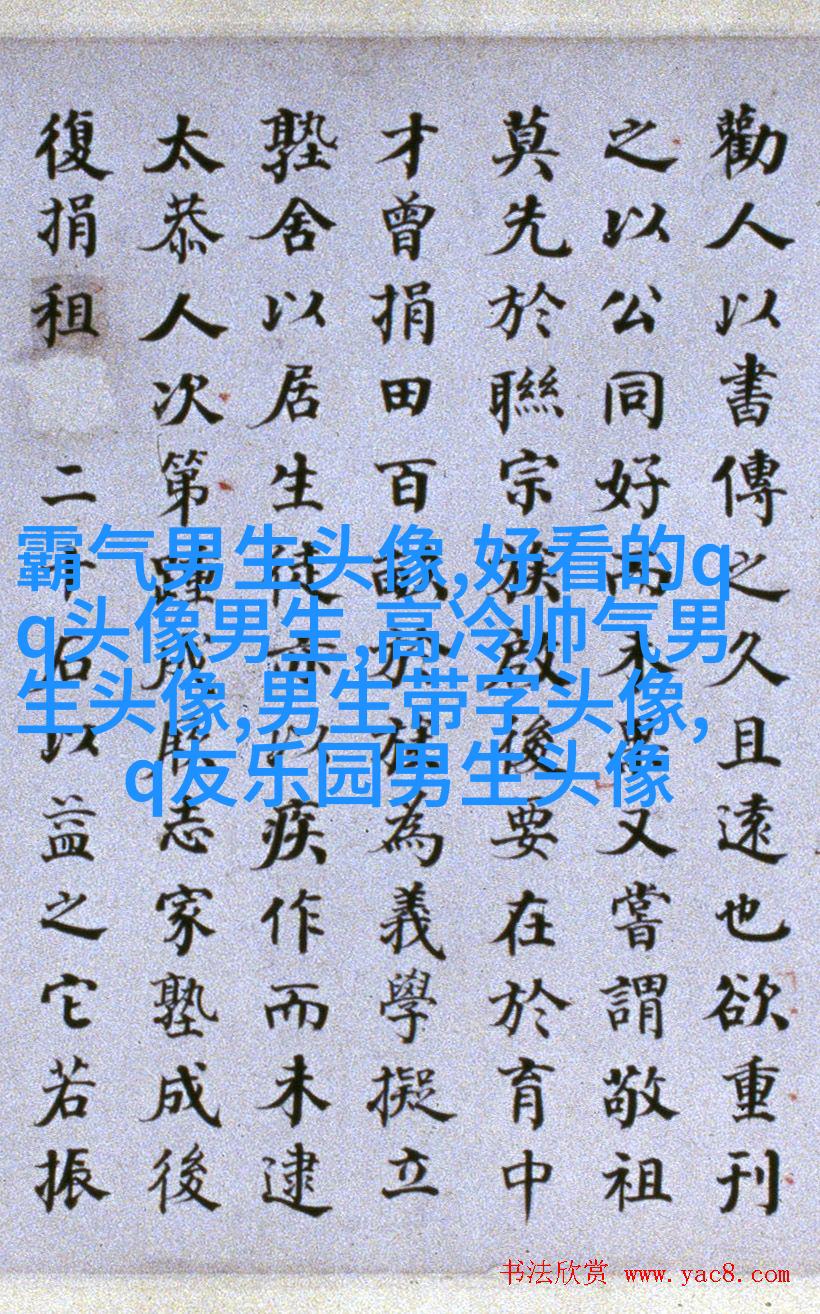 勸人以書傳之久且遠也欲重刊
之以公同好而未又嘗謂敬祖
莫先於聯宗族啟後要在於育中
才曾捐田百畝於族為義學擬立
塾舍以居生徒亦以疾作而未逮
太恭人次第踵成厥志家塾成後
復捐租二石以益之它若振
霸气男生头像,好看的q
q头像男生,高冷帅气男
生头像,男生带字头像,
q友乐园男生头像
书法欣赏 www.yac8.com